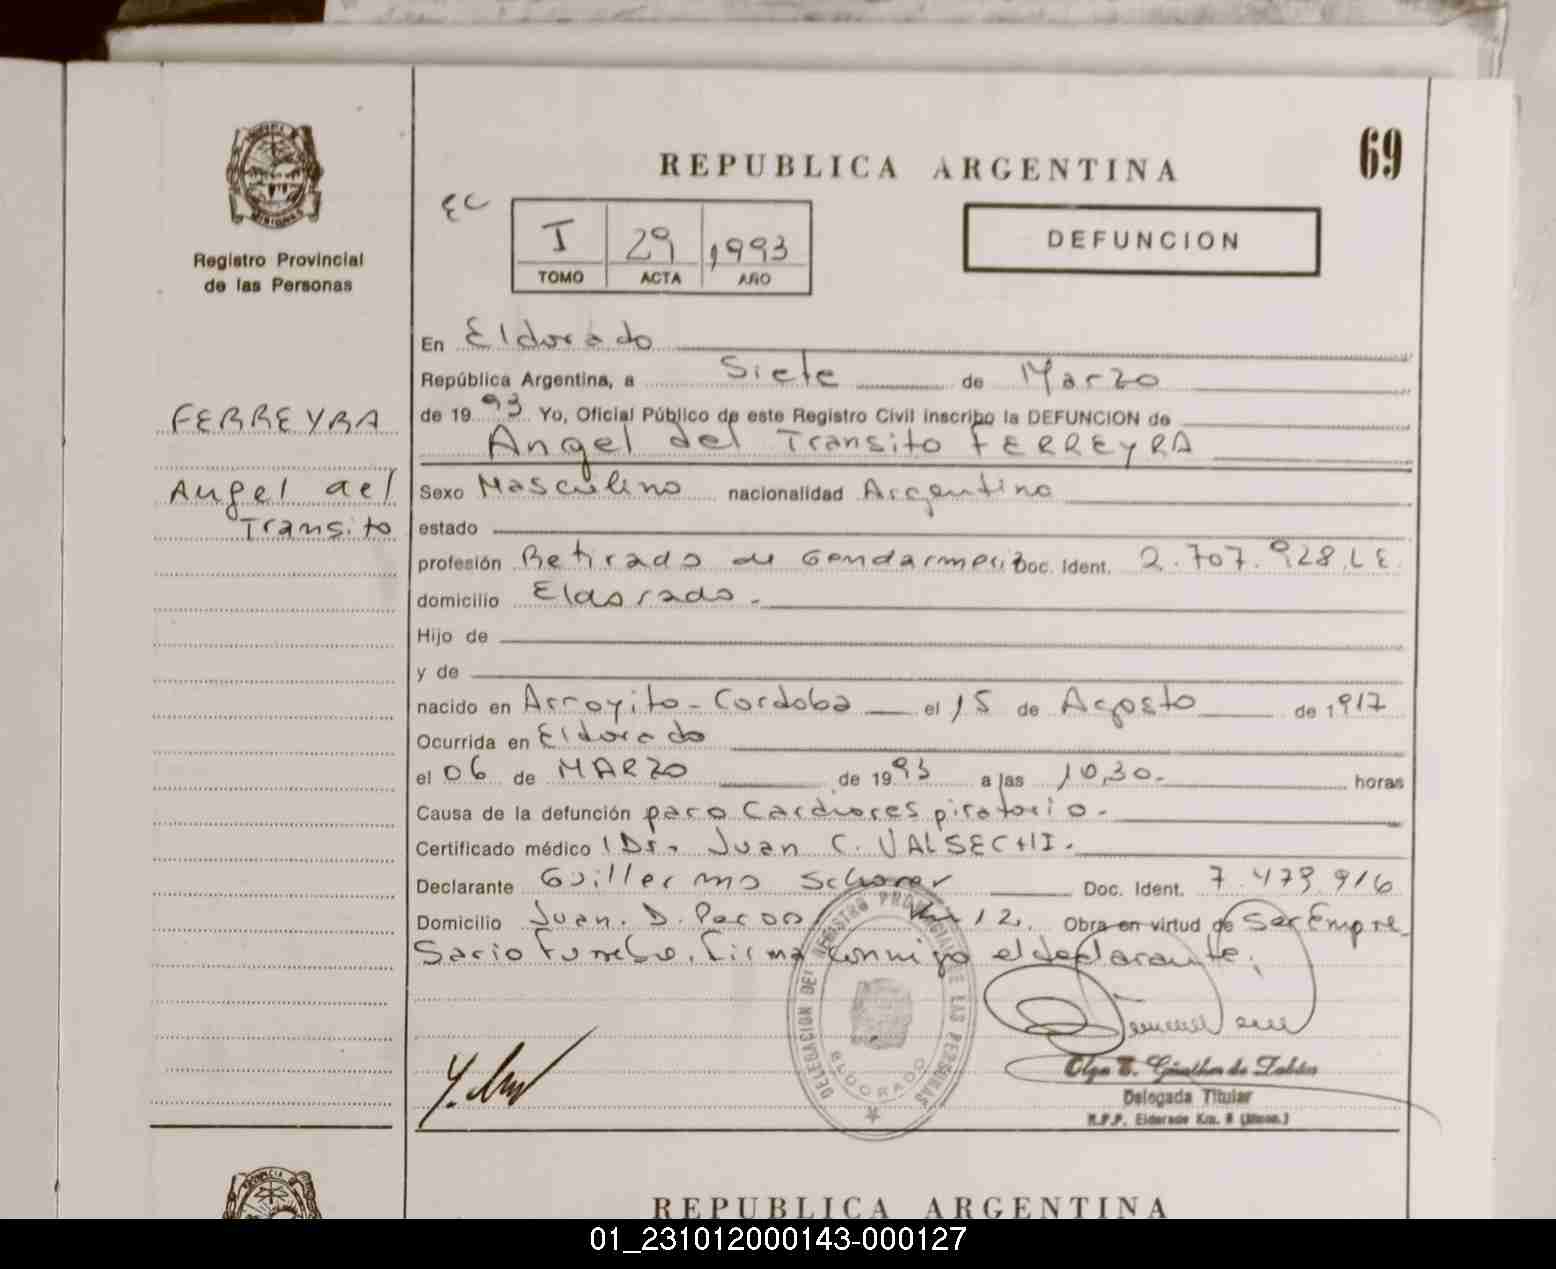 REPUBLICA ARGENTINA
69
Registro Provincial
de las Personas
EC
I 29 1993
TOMO ACTA AÑO
DEFUNCION
FERREYRA
Angel del
Transito
En Eldorado
República Argentina, a Siete de Marzo
de 1993 Yo, Oficial Público de este Registro Civil inscribo la DEFUNCION de
Angel del Transito FERREYRA
Sexo Masculino nacionalidad Argentino
estado
profesión Retirado de Gendarmeria Doc. Ident. 2.707.928 LE.
domicilio Eldorado.
Hijo de
y de
nacido en Arroyito - Cordoba el 15 de Agosto de 1917
Ocurrida en Eldorado
el 06 de MARZO de 1993 a las 10,30. horas
Causa de la defunción paro Cardiorespiratorio.
Certificado médico Dr. Juan C. VALSECHI.
Declarante Guillermo Schorer Doc. Ident. 7.473.916
Domicilio Juan. D. Peron 12. Obra en virtud de Ser Empre
Sario Funebre. Firma conmigo el declarante.
DELEGACION DEL REGISTRO PROVINCIAL DE LAS PERSONAS
ELDORADO
Delegada Titular
R.P.P. Eldorado Km. 8 (Mnes.)
REPUBLICA ARGENTINA
01_231012000143-000127